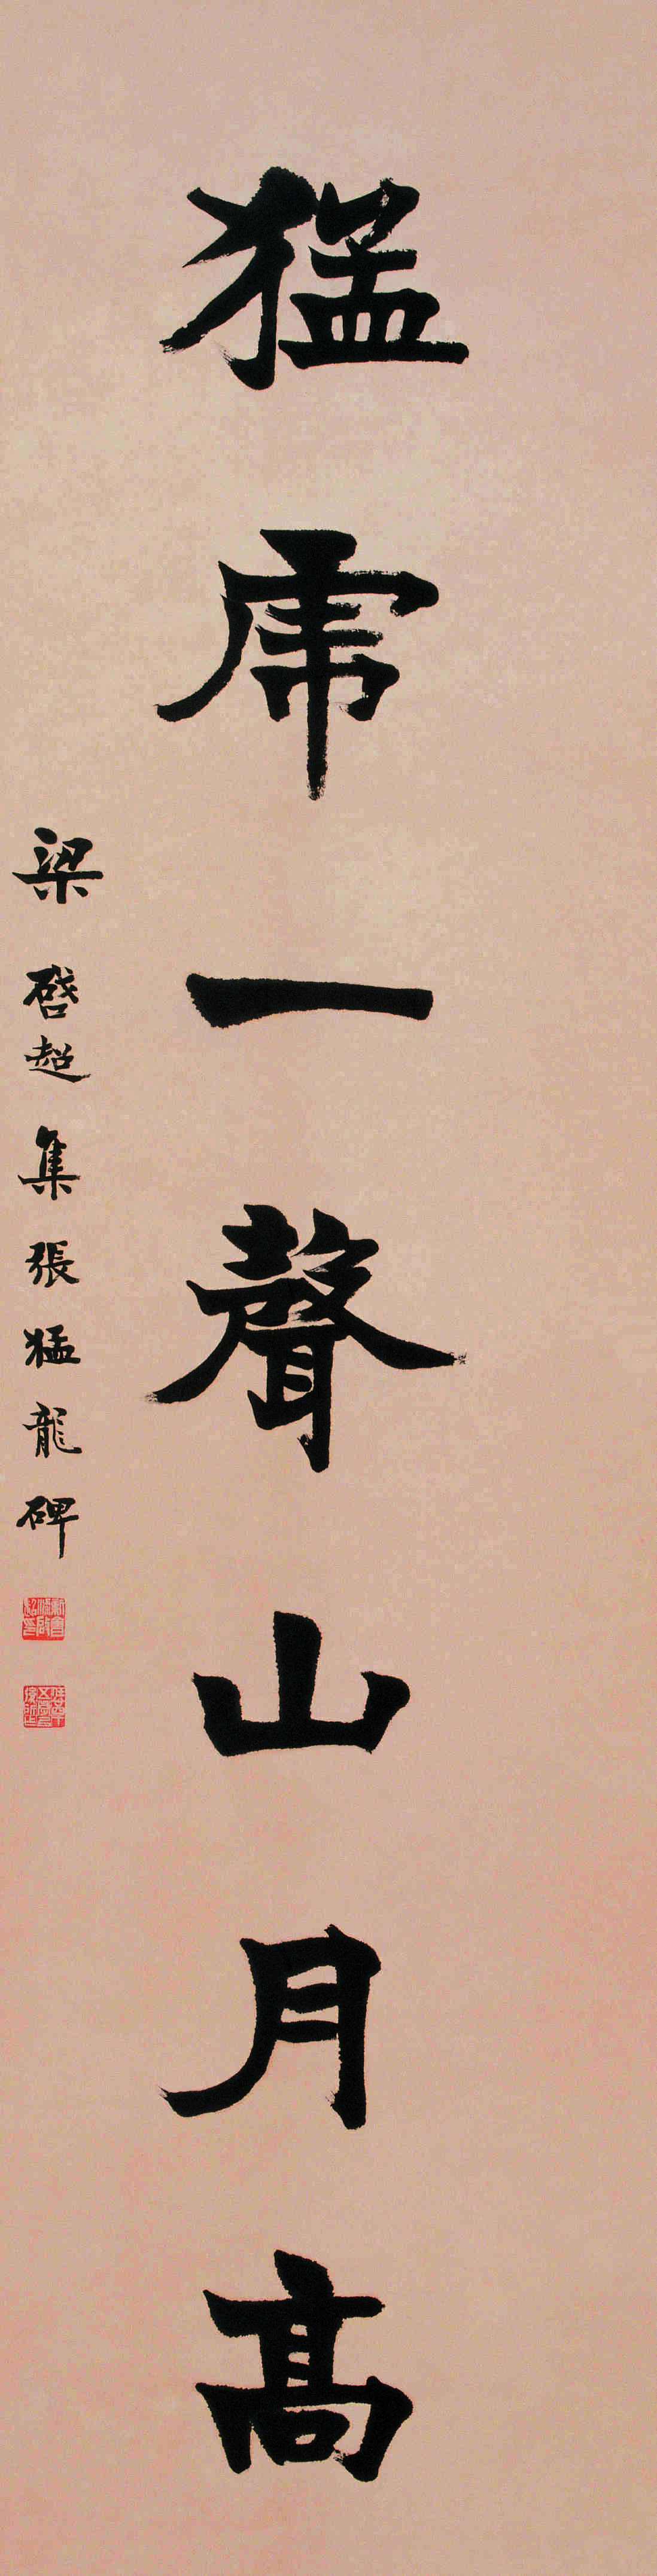 猛虎一聲山月高
梁啓超集張猛龍碑